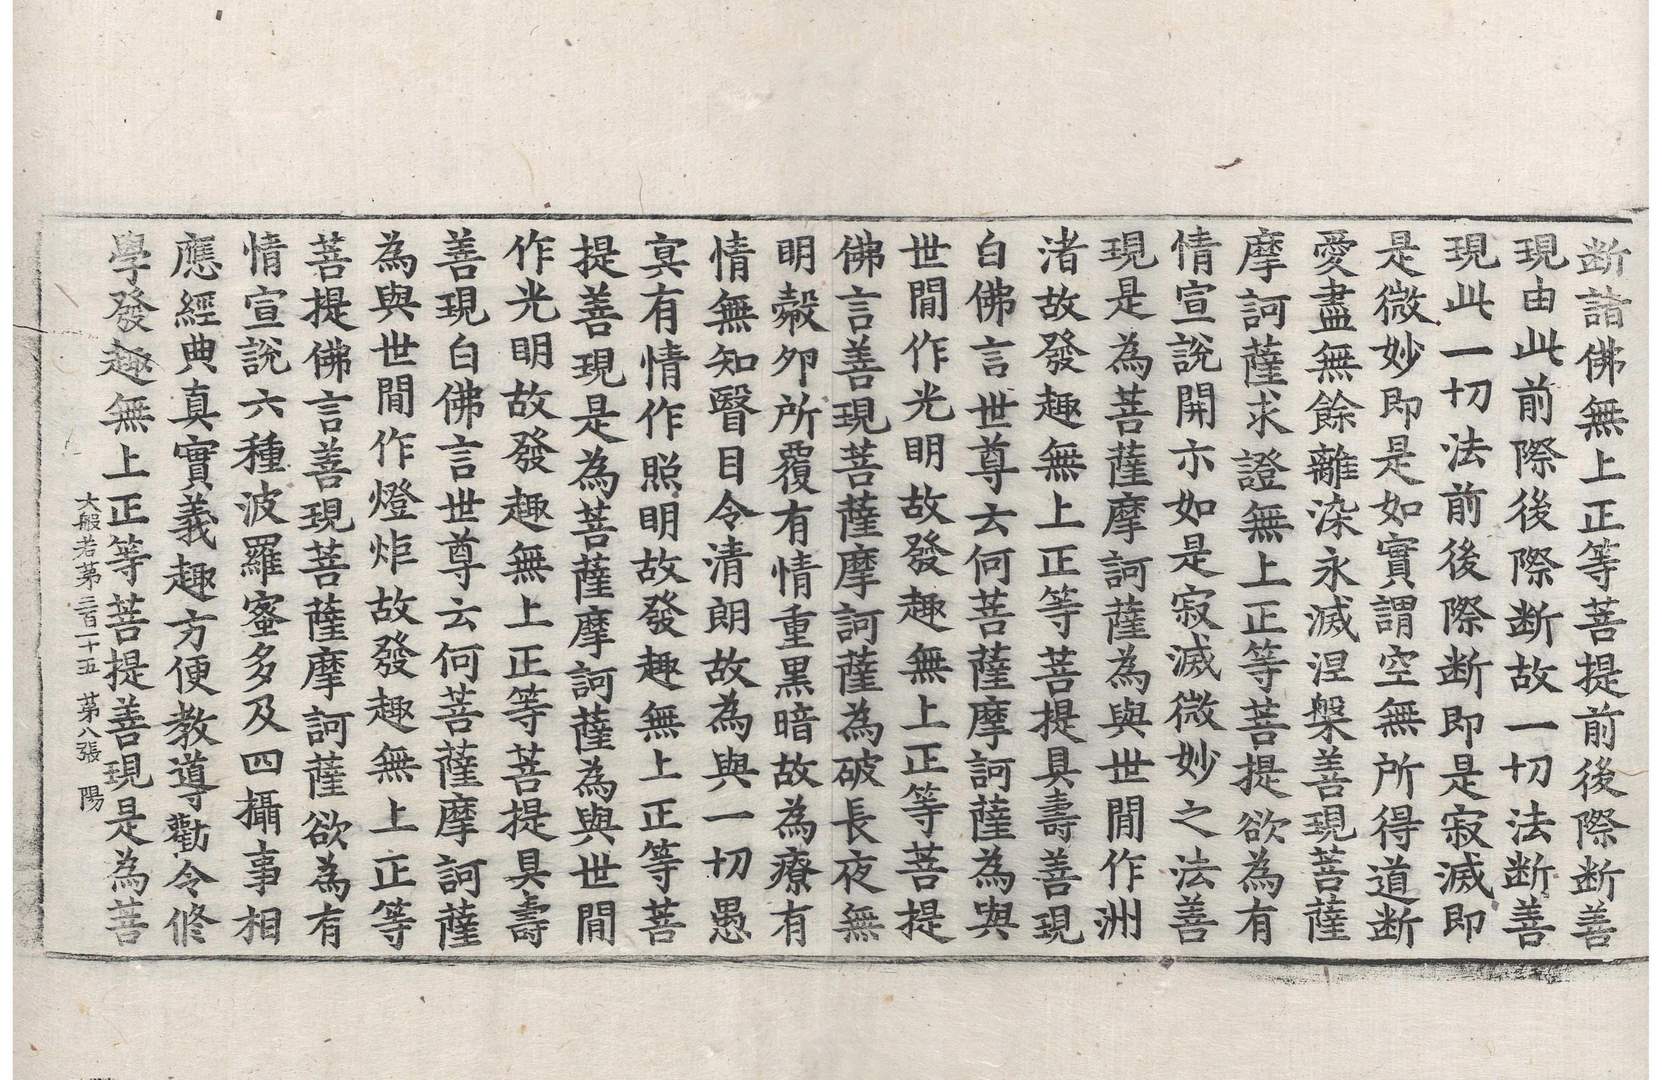 断諸佛無上正等菩提前後際断善
現由此前際後際断故一切法断善
現此一切法前後際断即是寂滅即
是微妙即是如實謂空無所得道断
愛盡無餘離染永滅涅槃善現菩薩
摩訶薩求證無上正等菩提欲為有
情宣說開示如是寂滅微妙之法善
現是為菩薩摩訶薩為與世間作洲
渚故發趣無上正等菩提具壽善現
白佛言世尊云何菩薩摩訶薩為與
世間作光明故發趣無上正等菩提
佛言善現菩薩摩訶薩為破長夜無
明㲉夘所覆有情重黒暗故為療有
情無知瞖目令清朗故為與一切愚
冥有情作照明故發趣無上正等菩
提善現是為菩薩摩訶薩為與世間
作光明故發趣無上正等菩提具壽
善現白佛言世尊云何菩薩摩訶薩
為與世間作燈炬故發趣無上正等
菩提佛言善現菩薩摩訶薩欲為有
情宣說六種波羅蜜多及四攝事相
應經典真實義趣方便教導勸令修
學發趣無上正等菩提善現是為菩
大般若第三百一十五 第八張 陽